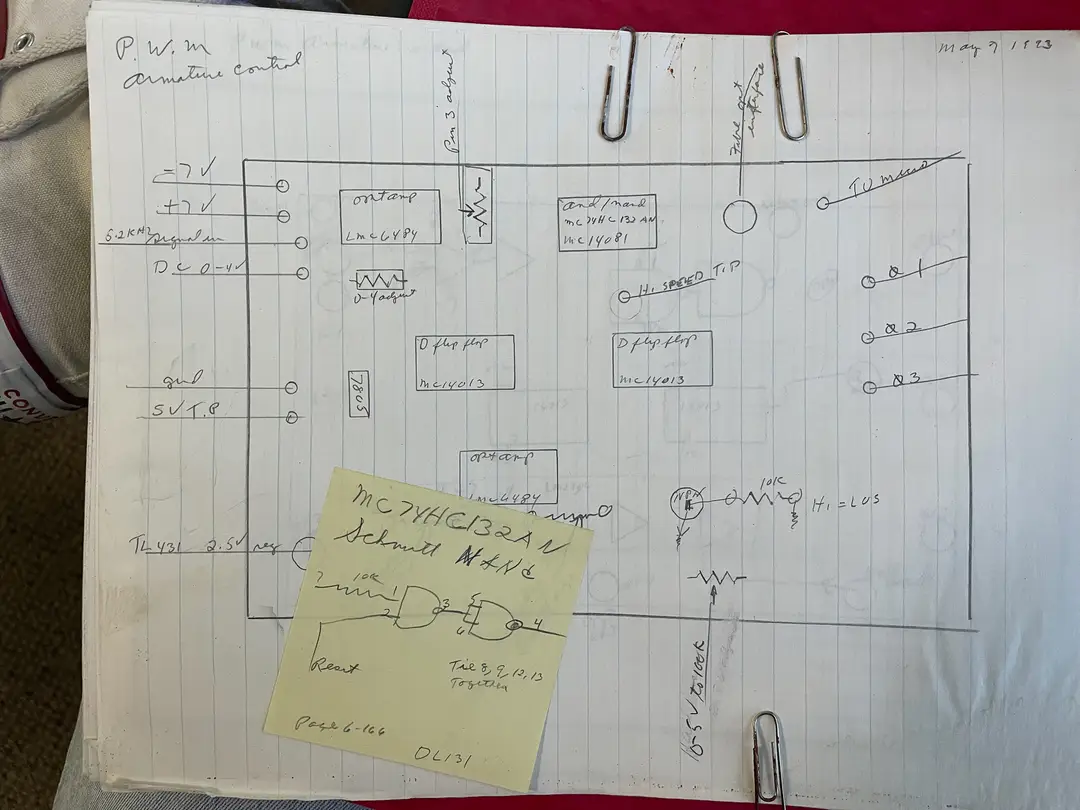 P.W.M
armature control
May 9 1993
Pin 3 adjust
Fibre opt
interface
-7V
+7V
6.2KHz signal in
DC 0-4V
opt amp
LMC6484
0-4 adjust
and/nand
MC74HC132AN
MC14081
TO micro
Hi SPEED T.P
Q 1
Q 2
Q3
D flip flop
MC14013
D flip flop
MC14013
7805
gnd
5V T.P
opt amp
LMC6484
NPN
10K
Hi = LOS
TL431 2.5V reg
10-5V to 100K
MC74HC132AN
Schmitt NAND
7
10K
1
2
3
5
6
4
Reset
Tie 8, 9, 12, 13
Together
Page 6-166
DL131
CONV